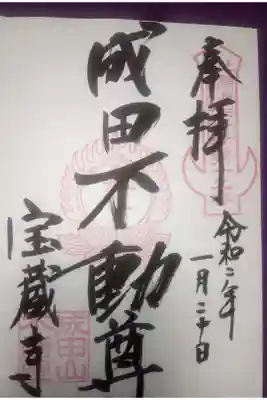 奉拝
令和二年
一月二十日
成田不動尊
宝蔵寺